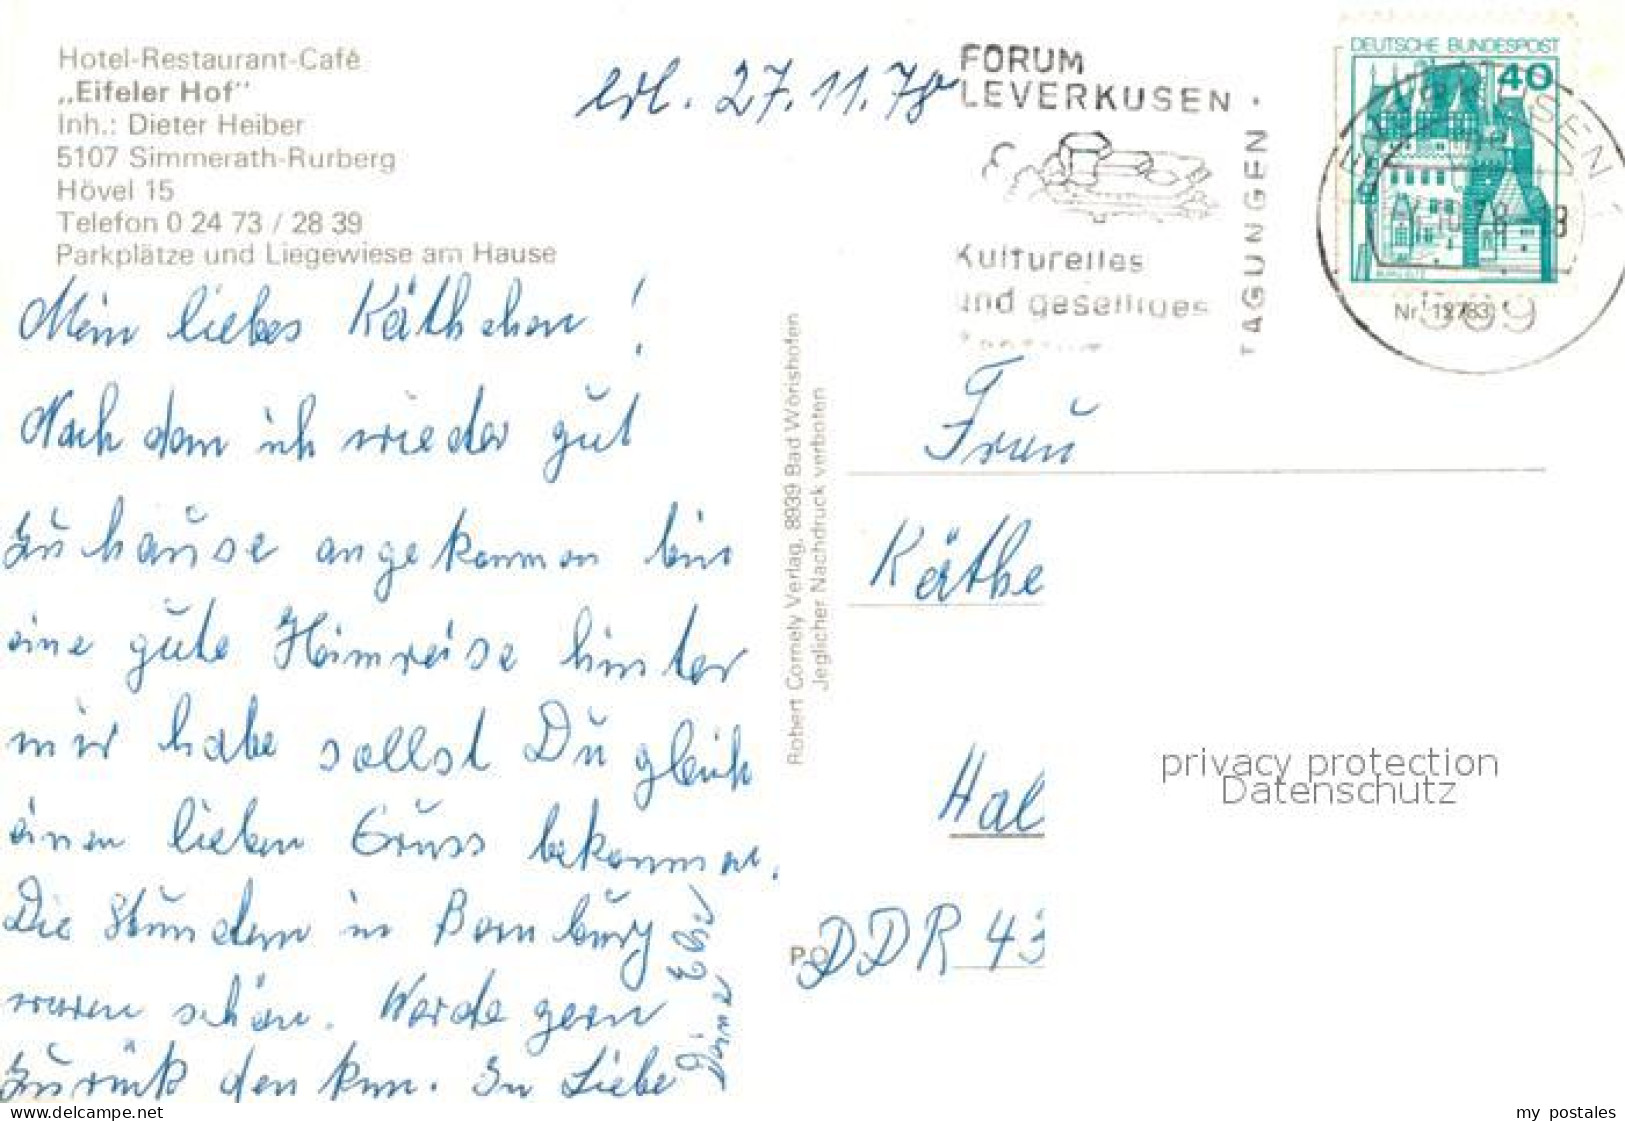 Hotel-Restaurant-Café
„Eifeler Hof"
Inh.: Dieter Heiber
5107 Simmerath-Rurberg
Hövel 15
Telefon 0 24 73 / 28 39
Parkplätze und Liegewiese am Hause
erl. 27.11.78
FORUM
LEVERKUSEN ·
TAGUNGEN
Kulturelles
und geselliges
DEUTSCHE BUNDESPOST
40
LEVERKUSEN 1
509
Nr. 12783
Mein liebes Käthchen!
Nach dem ich wieder gut
zu hause angekommen bin
eine gute Heimreise hinter
mir habe sollst Du gleich
einen lieben Gruss bekommen.
Die Stunden in Bamburg
waren schön. Werde gern
zurück denken. In Liebe
Deine Else
Robert Cornely Verlag, 8939 Bad Wörishofen
Jeglicher Nachdruck verboten
Frau
Käthe
Hal
DDR 43
privacy protection
Datenschutz
www.delcampe.net
my_postales